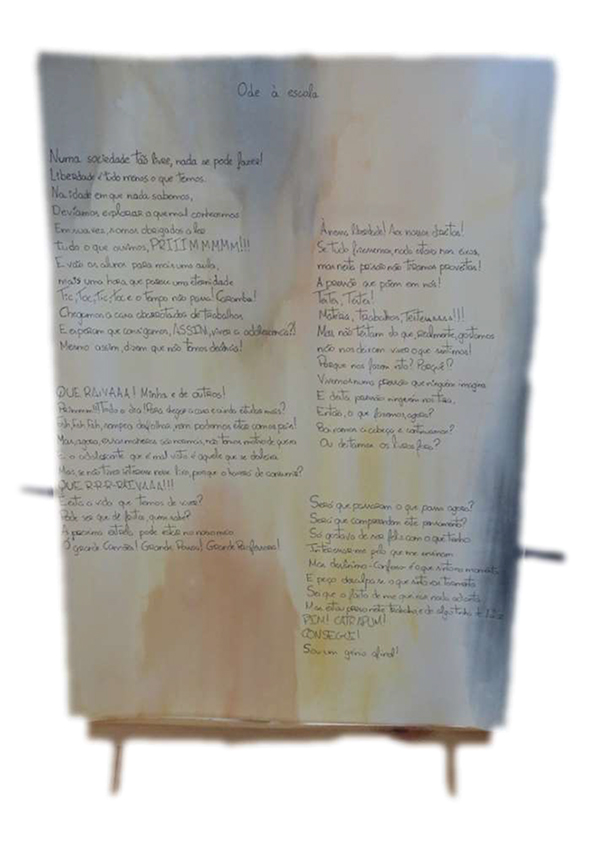 Ode à escola
Numa sociedade tão livre, nada se pode fazer!
Liberdade é tudo menos o que temos.
Na idade em que nada sabemos,
Devíamos explorar o que mal conhecemos
Em sua vez, somos obrigados a ler
tudo o que ouvimos, PRIIIMMMMM!!!
E vão os alunos para mais uma aula,
mais uma hora que parece uma eternidade
Tic, Toc, Tic, Toc e o tempo não passa! Caramba!
Chegamos a casa abarrotados de trabalhos
E esperam que consigamos, ASSIM, viver a adolescência?!
Mesmo assim, dizem que não temos decência!
QUE RAIVAAA! Minha e de outros!
Todo o dia! Para chegar a casa e ainda estudar mais?
nem podermos estar com os pais!
Mas, agora,
E o adolescente que é mal visto é aquele que se
Mas, se não tiver interesse nesse livro, porque o haverei de
QUE R-R-R-RAIVAAA!!!
Esta a vida que temos de viver?
Pode ser que de feitos, quem sabe?
A próxima estrela pode estar no nosso meio
O grande Camões! Grande Pessoa! Grande
À nossa liberdade! Aos nossos direitos!
Se tudo fizéssemos, nada estava nos eixos,
mas nesta prisão não tiramos proveitos!
A pressão que põem em nós!
Testa, Testa!
Matéria, Trabalhos, Testessss!!!
Mas não testam do que, realmente, gostamos
não nos deixam viver o que sentimos!
Porque nos fazem isto? Porquê!?
Vivemos numa pressão que ninguém imagina
E desta pressão ninguém nos tira.
Então, o que fazemos, agora?
Baixamos a cabeça e continuamos?
Ou deitamos os livros fora?
Será que pensaram o que passo agora?
Será que compreendem este pensamento?
Só gostava de ser feliz com o que tenho
Interessar-me pelo que me ensinam
Mas desânimo - Confesso é o que sinto no momento
E peço desculpa se o que sinto vos
Sei que o facto de me queixar nada adianta
Mas estou presa neste trabalho e do
PIM! CATRAPUM!
CONSEGUI!
Sou um génio afinal!